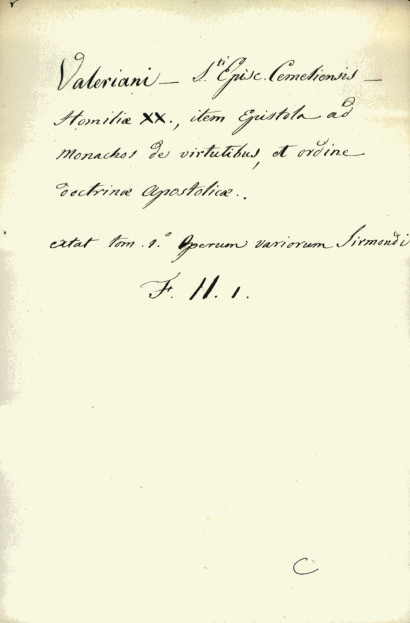 Valeriani – S.ti Episc. Cemeliensis –
Homiliæ XX., item Epistola ad
Monachos de virtutibus, et ordine
doctrinæ Apostolicæ..
extat tom. 1.º Operum variorum Sirmondi
F. H. 1.
C